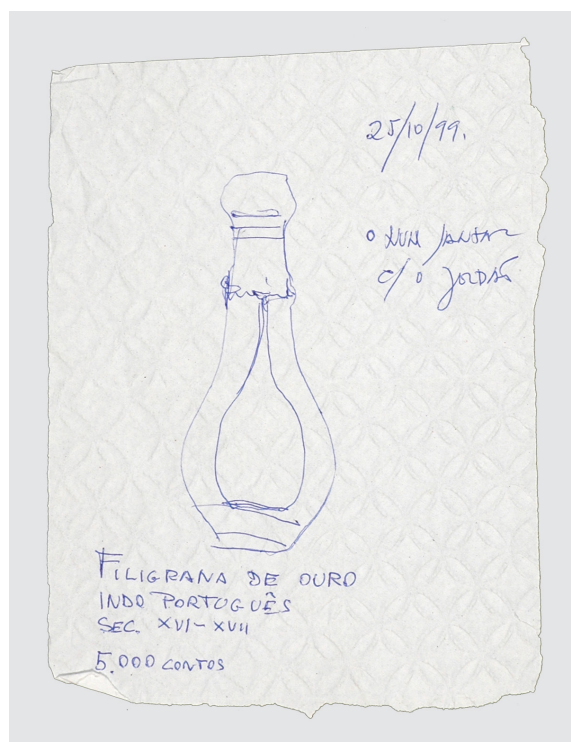 25/10/99.
o NUM JANTAR
C/ O JORDÃO
FILIGRANA DE OURO
INDO PORTUGUÊS
SEC. XVI-XVII
5.000 CONTOS